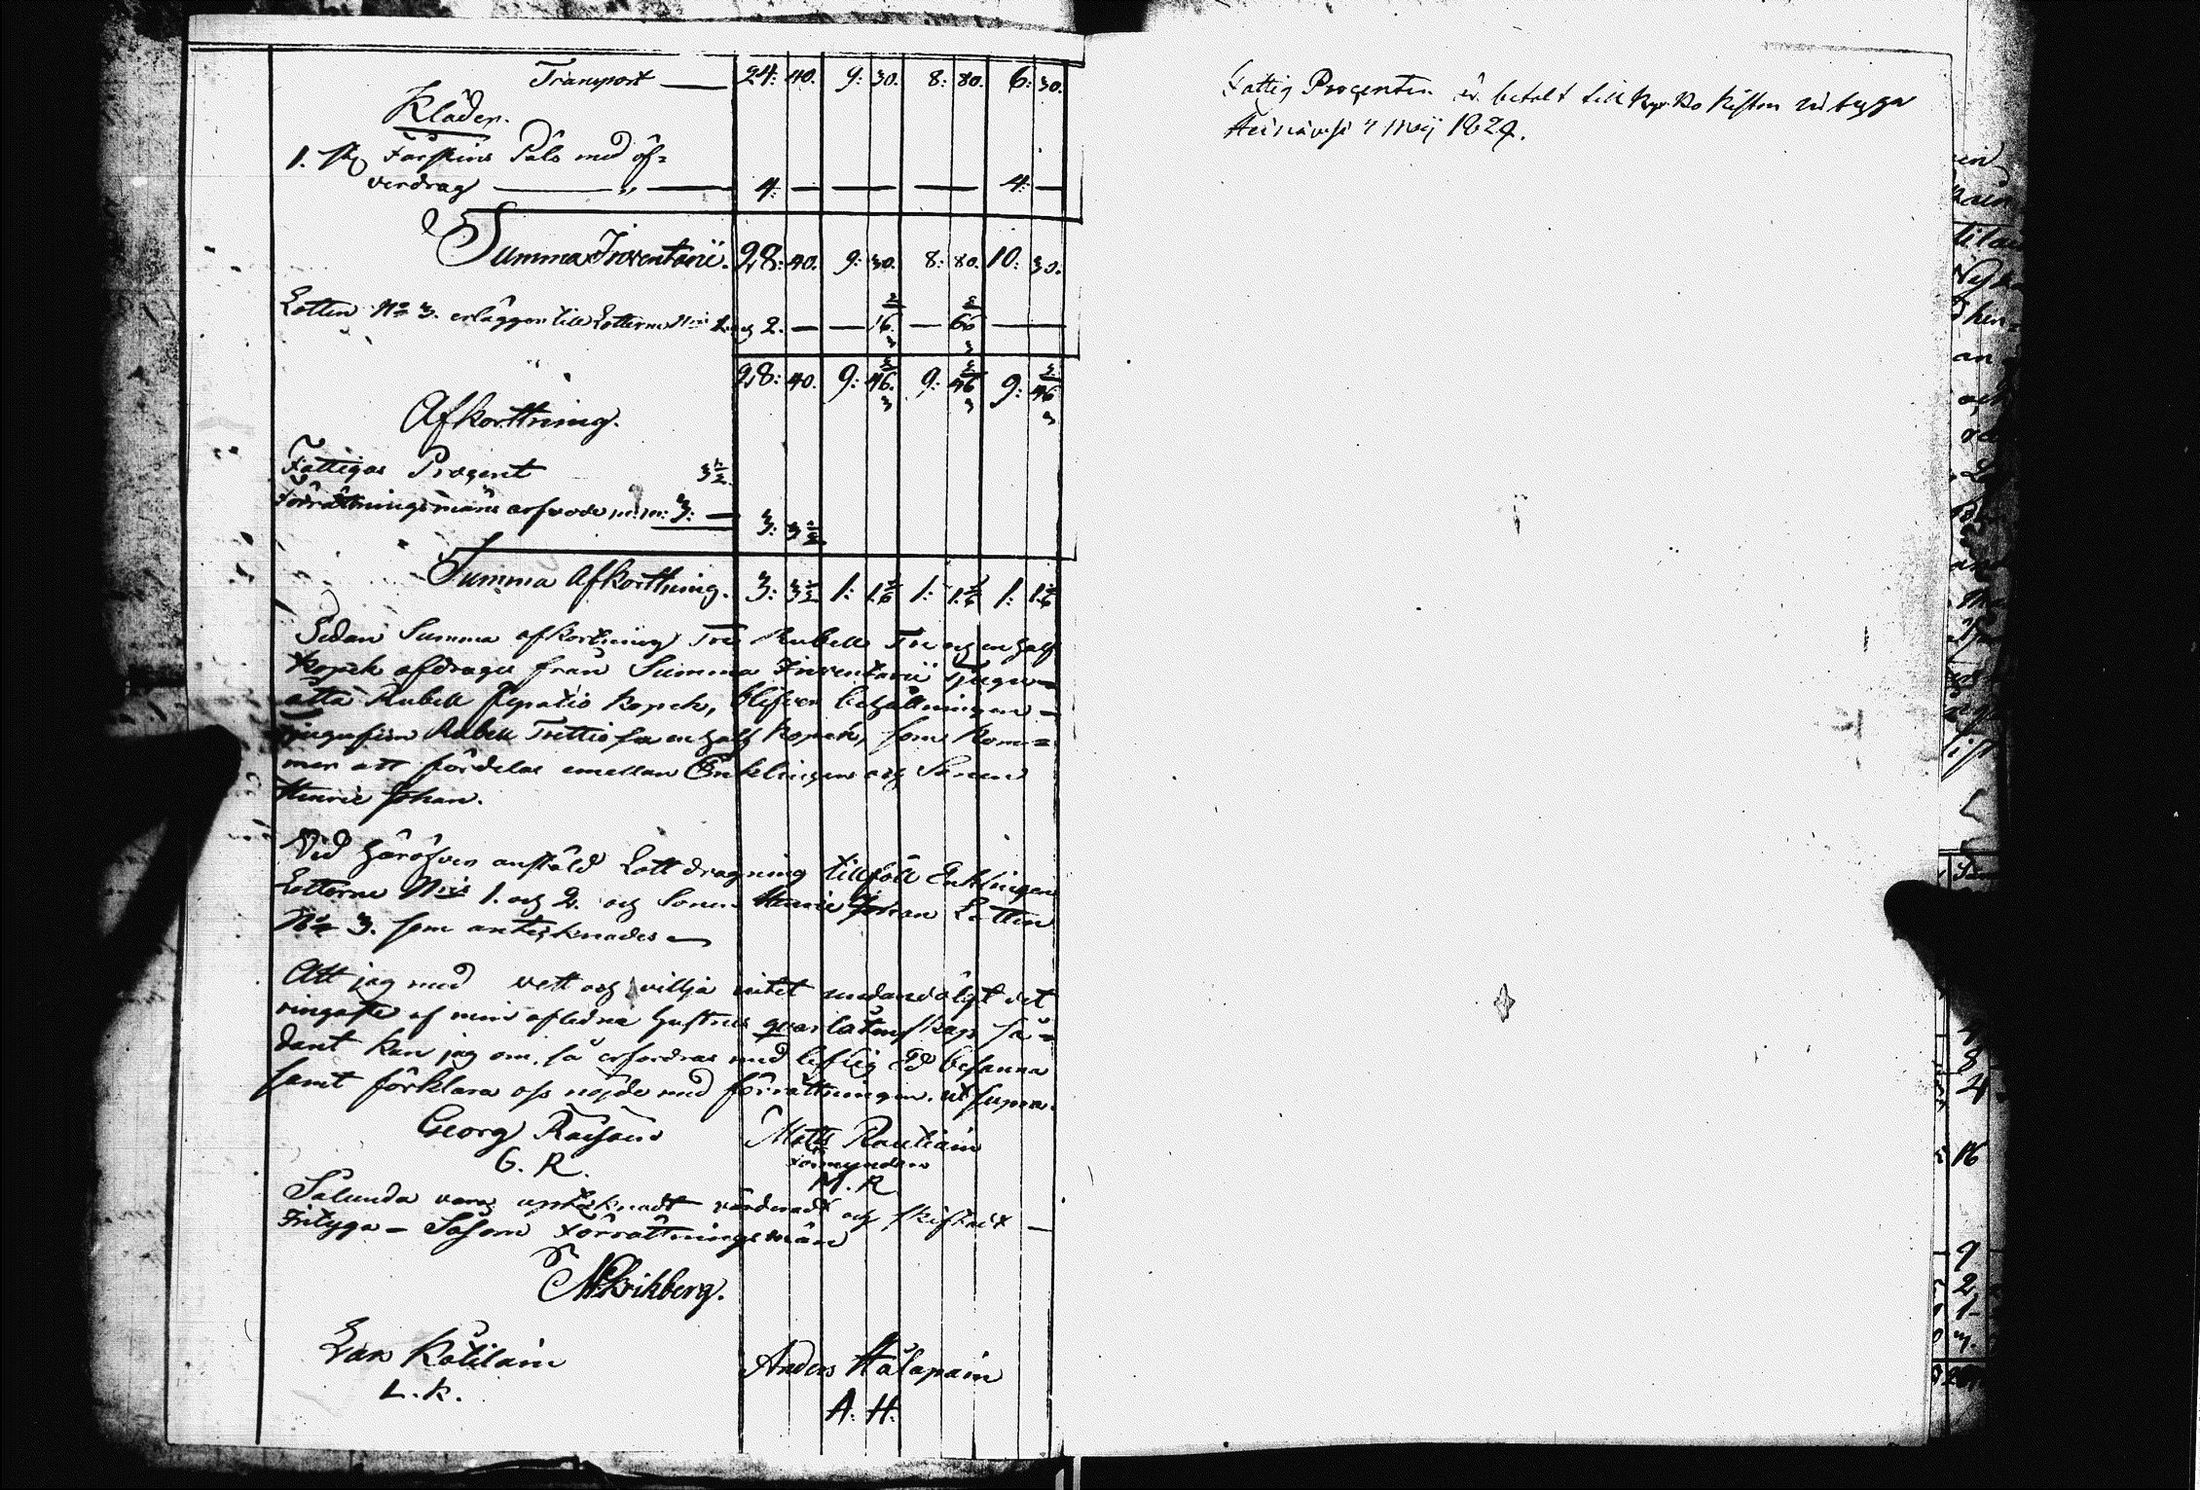 Transport — 24: 40. 9: 30. 8: 80. 6: 30.
Kläder.
1. st Fårskins Päls med öf=
verdrag — „ — 4: — — — 4: —
Summa Inventarii. 28: 40. 9: 30. 8: 80. 10: 30.
Lotten No 3. erlägger till Lotterne Nris 1. och 2. — — 16 2/3 — 66 2/3 —
28: 40. 9: 46 2/3 9: 46 2/3 9: 46 2/3
Afkorttning.
Fattigas Procent 3 1/2
Förrättningsmäns arfvode m: m: 3: — 3: 3 1/2
Summa Afkorttning. 3: 3 1/2 1: 1 1/6 1: 1 1/6 1: 1 1/6
Sedan Summa afkortning Tre Rubell Tre och en half
kopek afdrages från Summa Inventarii Tjugu=
åtta Rubell fyratio kopek, blifver behållningen —
Tjugufem Rubell Trettio sex en half kopek, som kom=
mer att fördelas emellan Enklingen och Sonen
Henric Johan.
Vid häröfver anstäld Lottdragning tillföll Enklingen
Lotterne Nris 1. och 2. och Sonen Henric Johan Lotten
No 3. som antecknades —
Att jag med vett och villja intet undandölgt det
ringaste af min aflidna hustrus qvarlåtenskap så=
dant kan jag om så erfordras med liflig Ed besanna
samt förklara oss nöjde med förrättningen. ut supra.
Georg Räisäin Matts Rautiain
G. R. Förmyndare
M. R.
Sålunda vara upteknadt värderadt och skiftadt —
betyga — Såsom Förrättningsmän
Lars Kotilain Anders Hälapain
L. K. A. H.
Fattig Procenten är betalt till Kyrko kistan
7 Maij 1829.